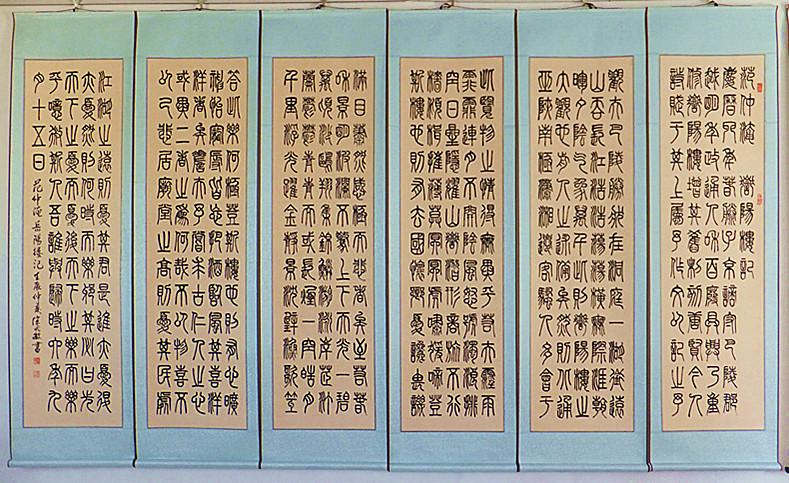 范仲淹 岳陽樓記
慶曆四年春滕子京謫守巴陵郡
越明年政通人和百廢具興乃重
修岳陽樓增其舊制刻唐賢今人
詩賦于其上屬予作文以記之予
觀夫巴陵勝狀在洞庭一湖銜遠
山吞長江浩浩湯湯橫無際涯朝
暉夕陰氣象萬千此則岳陽樓之
大觀也前人之述備矣然則北通
巫峽南極瀟湘遷客騷人多會于
此覽物之情得無異乎若夫霪雨
霏霏連月不開陰風怒號濁浪排
空日星隱耀山岳潛形商旅不行
檣傾楫摧薄暮冥冥虎嘯猿啼登
斯樓也則有去國懷鄉憂讒畏譏
滿目蕭然感極而悲者矣至若春
和景明波瀾不驚上下天光一碧
萬頃沙鷗翔集錦鱗游泳岸芷汀
蘭郁郁青青而或長煙一空皓月
千里浮光躍金靜影沉璧漁歌互
答此樂何極登斯樓也則有心曠
神怡寵辱皆忘把酒臨風其喜洋
洋者矣嗟夫予嘗求古仁人之心
或異二者之為何哉不以物喜不
以己悲居廟堂之高則憂其民處
江湖之遠則憂其君是進亦憂退
亦憂然則何時而樂耶其必曰先
天下之憂而憂後天下之樂而樂
乎噫微斯人吾誰與歸時六年九
月十五日
范仲淹岳陽樓記壬辰仲夏 書